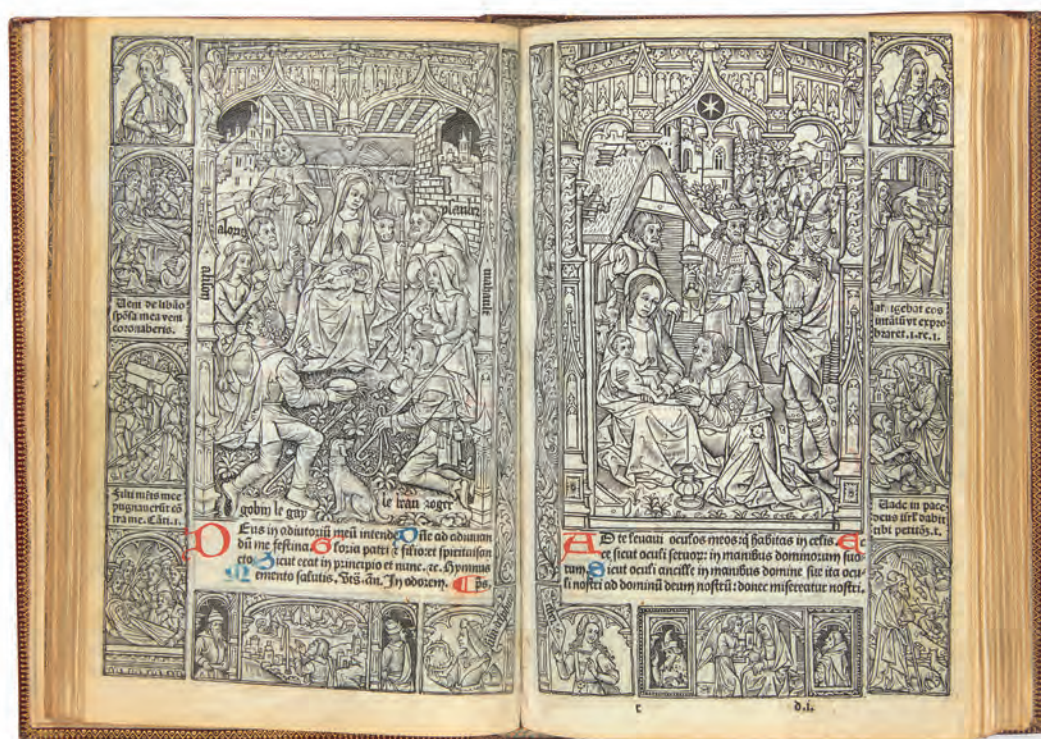 alory
ahison
plaiser
mahault
gobin le gay
le beau roger
Veni de libāo
spōsa mea veni
coronaberis.
Filii mr̄is mee
pugnauerūt cō
tra me. Cāti. 1.
DEus in adiutoriū meū intende Dn̄e ad adiuuan
dū me festina. Gloria patri et filio: et spiritui san
cto Sicut erat in principio et nunc. ꝛc. Hymnus
Memento salutis. An̄. In odorem. Ps.
AD te leuaui oculos meos: q̄ habitas in celis. Ec
ce sicut oculi seruoꝝ: in manibus dominorum suo
rum. Sicut oculi ancille in manibus domine sue ita ocu
li nostri ad dominū deum nostrū: donec misereatur nostri.
igebat eos
expro
braret. 1. re. 1.
Vade in pace
deus isrl̄ dabit
tibi petitiōs. 1.
c
d.i.